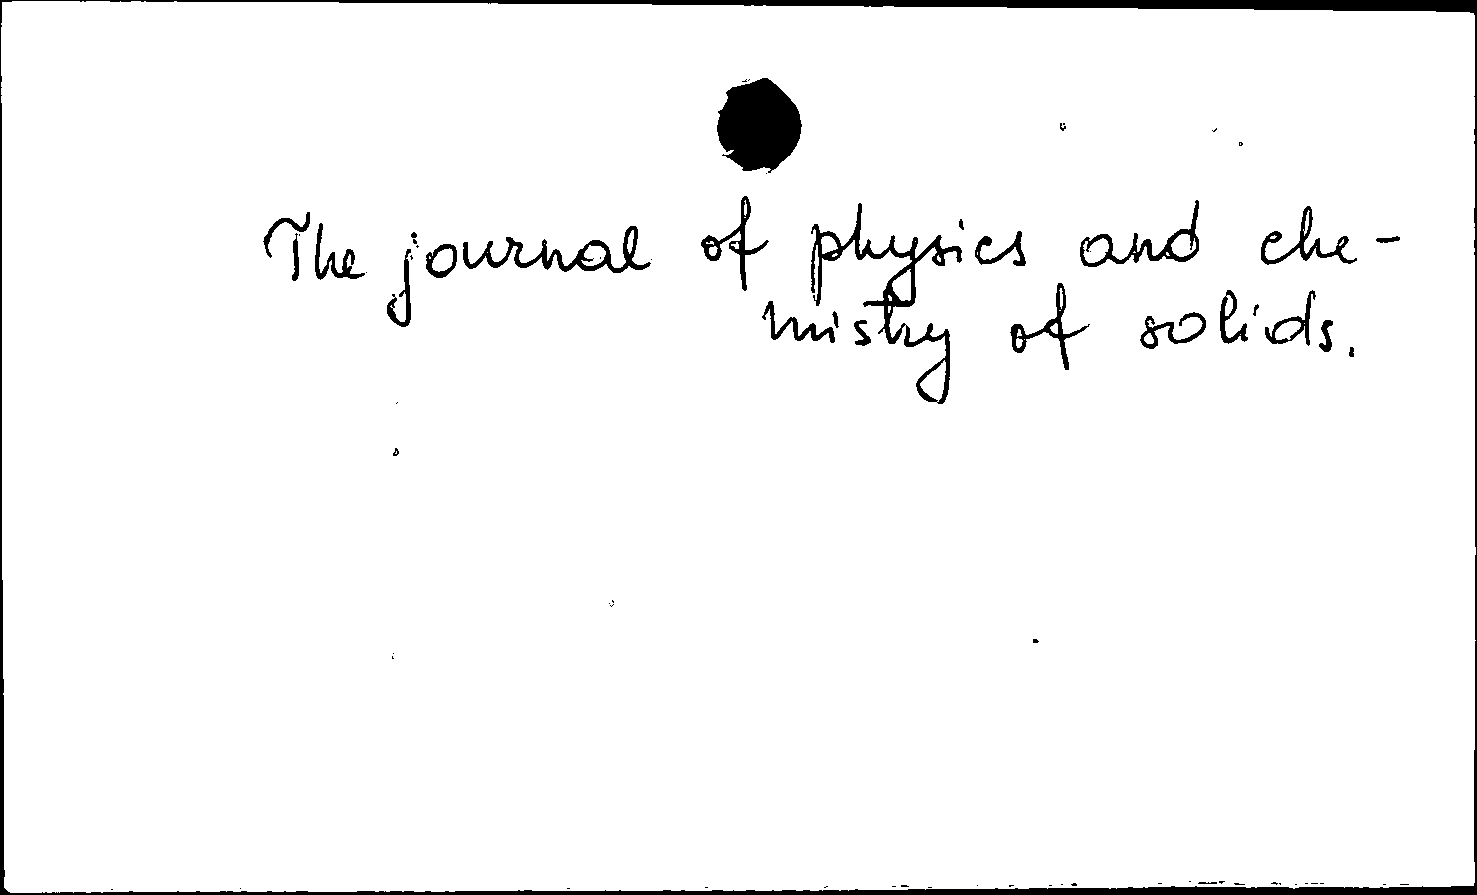 The journal of physics and che-
mistry of solids.